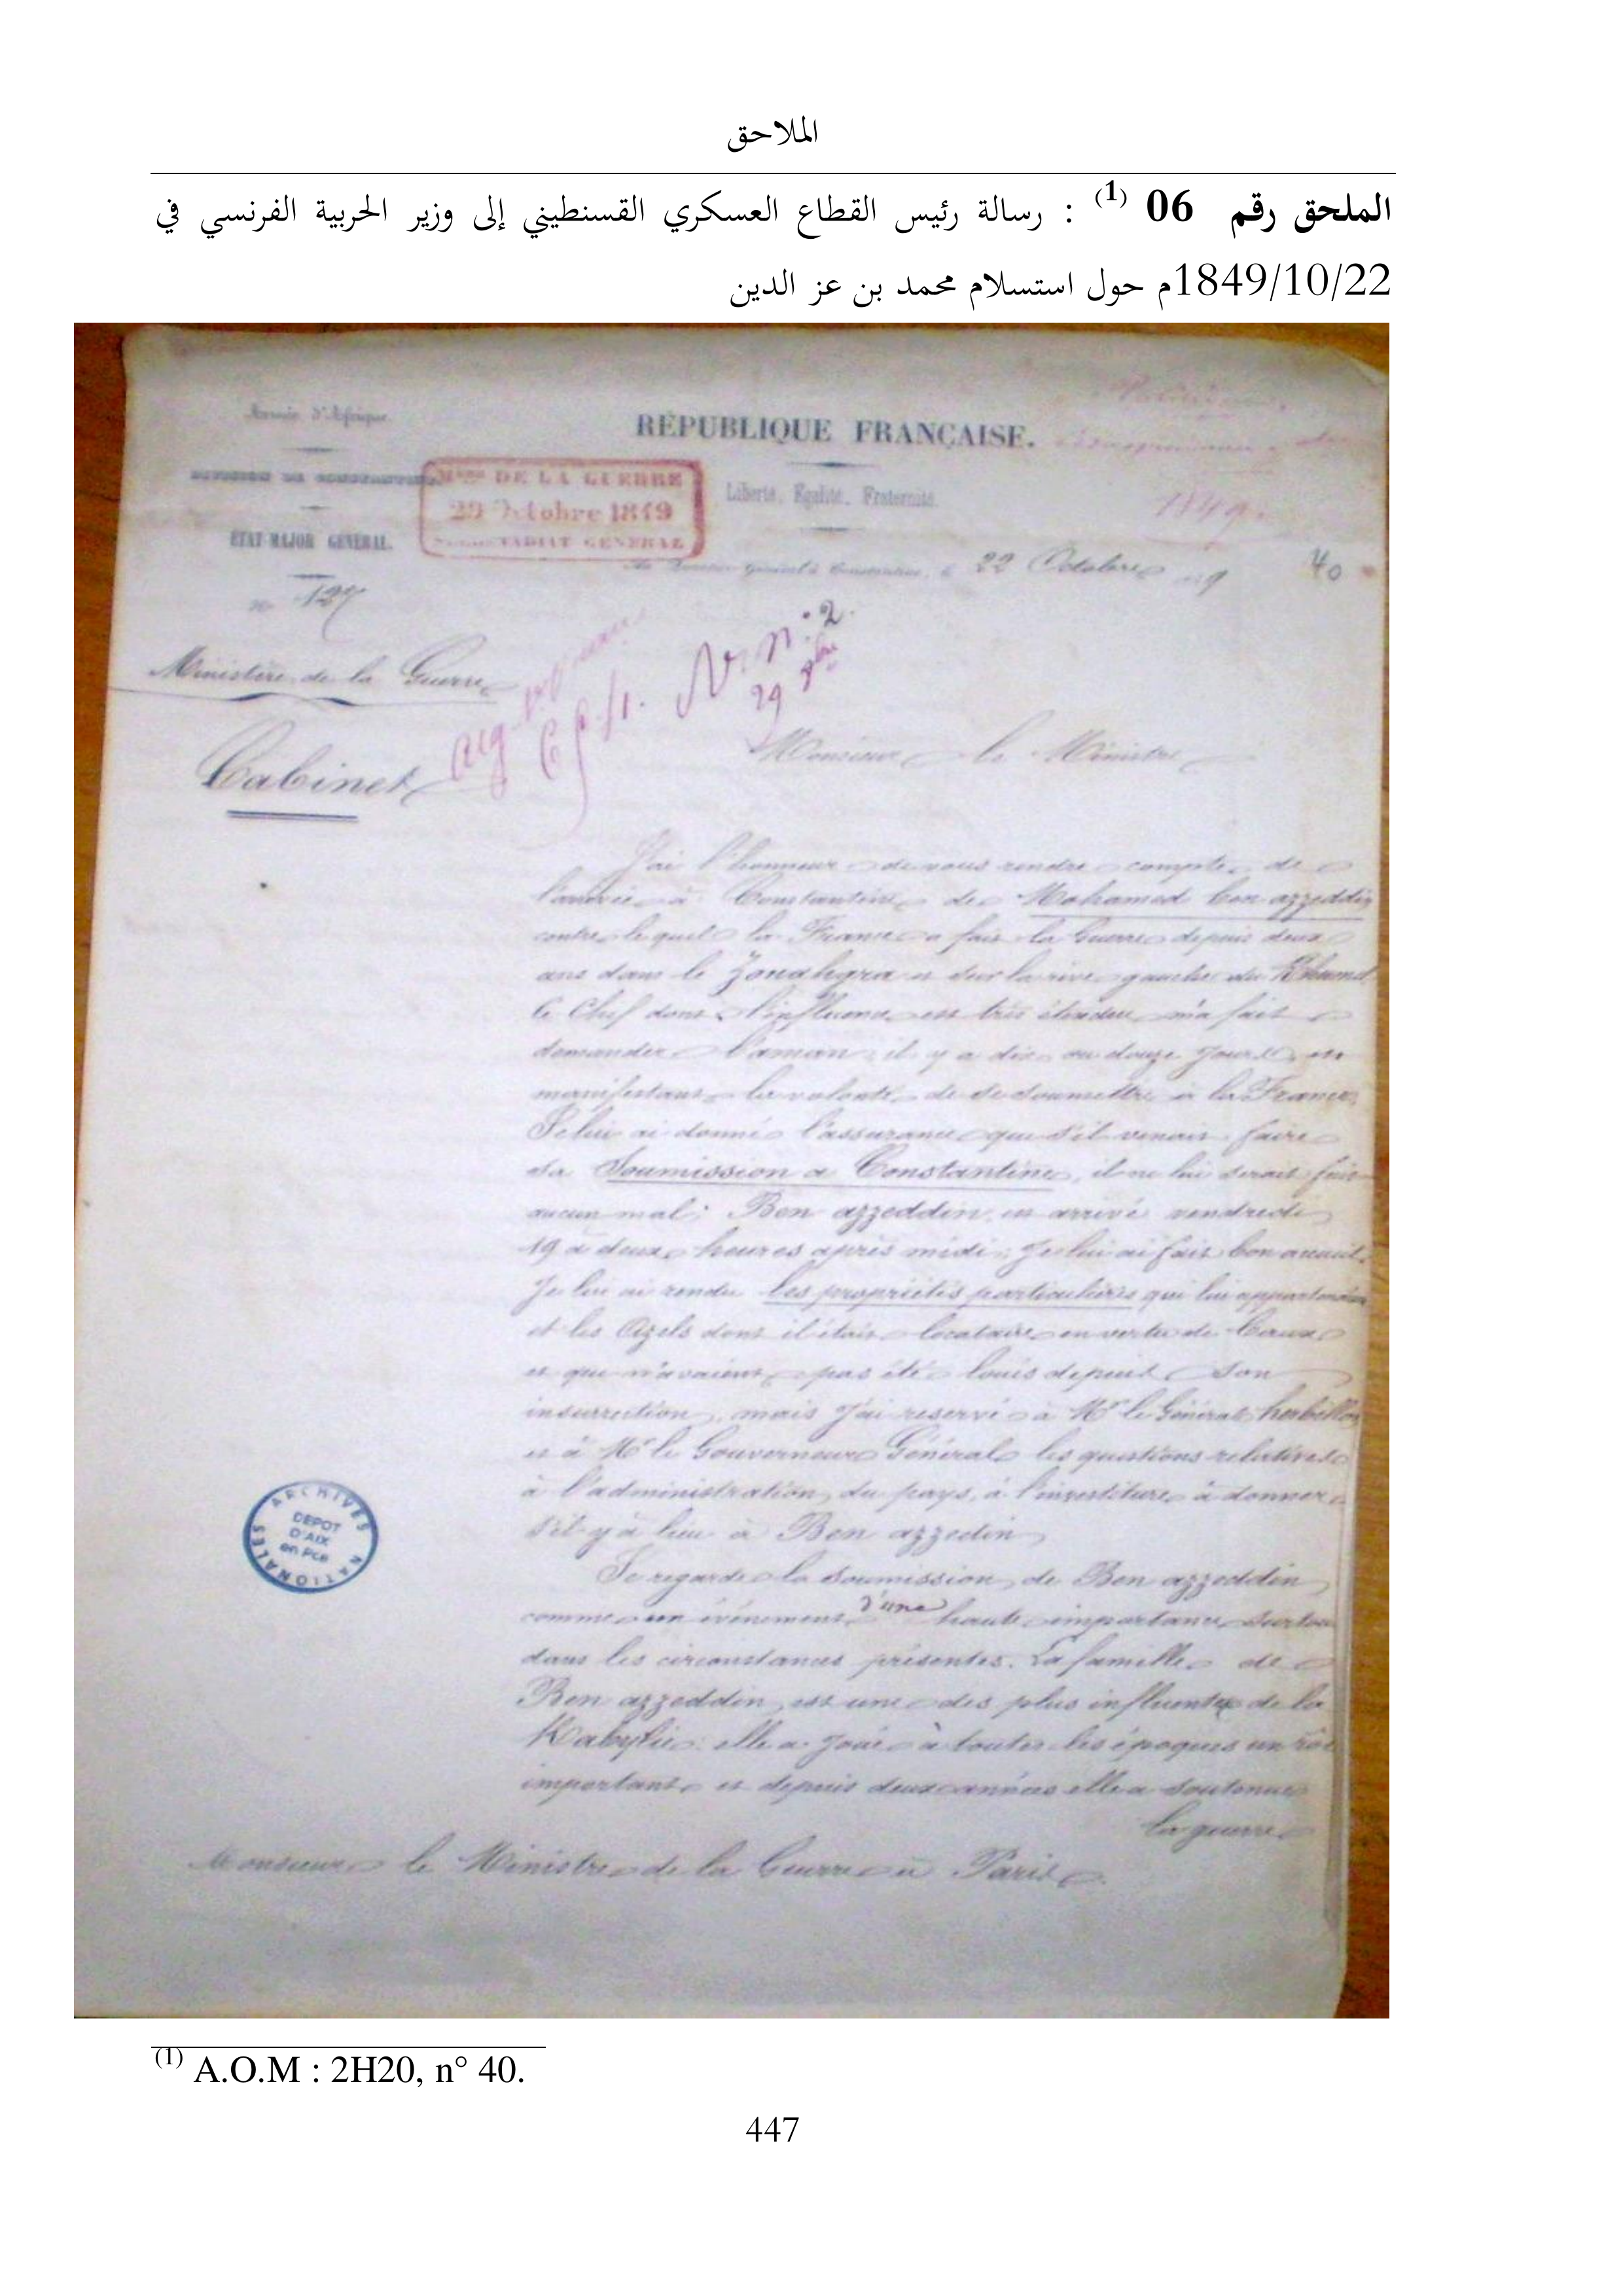 الملاحق
الملحق رقم 06 (1) : رسالة رئيس القطاع العسكري القسنطيني إلى وزير الحربية الفرنسي في
1849/10/22م حول استسلام محمد بن عز الدين
Armée d'Afrique
RÉPUBLIQUE FRANÇAISE.
DIVISION DE CONSTANTINE
DE LA GUERRE
29 Octobre 1849
SECRETARIAT GENERAL
Liberté, Egalité, Fraternité
1849.
ÉTAT-MAJOR GÉNÉRAL.
Au Quartier Général à Constantine, le 22 Octobre 9
40
n° 127
N. n° 2.
29
Ministère de la Guerre
Cabinet
Monsieur le Ministre
J'ai l'honneur de vous rendre compte de
l'arrivée à Constantine de Mohamed ben azzeddin
contre lequel la France a fait la Guerre depuis deux
ans dans le Zouahgra et sur la rive gauche du Rhumel
Ce Chef dont l'influence est très étendue m'a fait
demander l'aman il y a dix ou douze jours en
manifestant la volonté de se soumettre à la France
Je lui ai donné l'assurance que s'il venait faire
sa Soumission a Constantine, il ne lui serait fait
aucun mal; Ben azzeddin est arrivé vendredi
19 à deux heures après midi; Je lui ai fait bon accueil.
Je lui ai rendu les propriétés particulières qui lui appartenaient
et les Azels dont il était locataire en vertu de Baux
et qui n'avaient pas été loués depuis son
insurrection, mais j'ai reservé à Mr le Général herbillon
et à Mr le Gouverneur Général les questions relatives
à l'administration du pays, à l'investiture à donner
s'il y à lieu à Ben azzedin
Je regarde la soumission de Ben azzeddin
comme un événement d'une haute importance surtout
dans les circonstances présentes. La famille de
Ben azzeddin est une des plus influentes de la
Kabylie: elle a joué à toutes les époques un rôle
important et depuis deux années elle a soutenue
la guerre
Monsieur le Ministre de la Guerre à Paris.
ARCHIVES NATIONALES
DEPOT
D'AIX
en Pce
(1) A.O.M : 2H20, n° 40.
447